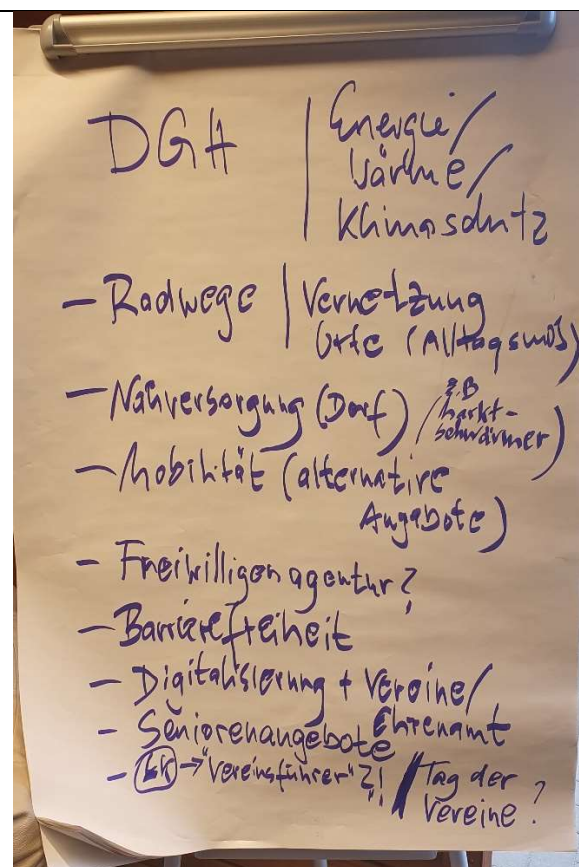 DGH | Energie/
Wärme/
Klimaschutz
- Radwege | Vernetzung
Orte (Alltagsmob)
- Nahversorgung (Dorf) (z.B
Markt-
schwärmer)
- Mobilität (alternative
Angebote)
- Freiwilligenagentur?
- Barrierefreiheit
- Digitalisierung + Vereine/
Ehrenamt
- Seniorenangebote
- LK → "Vereinsführer"?! / Tag der
Vereine?